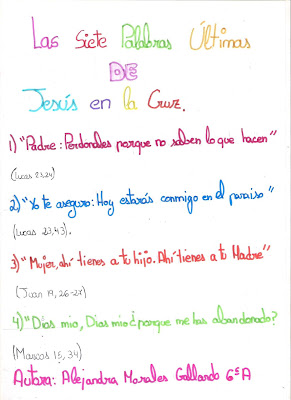 Las Siete Palabras Últimas
DE
Jesús en la Cruz.
1) "Padre: Perdonales porque no saben lo que hacen"
(Lucas 23,24)
2) "Yo te aseguro: Hoy estarás conmigo en el paraiso"
(Lucas 23,43).
3) "Mujer, ahí tienes a tu hijo. Ahí tienes a tu Madre"
(Juan 19, 26-27)
4) "Dios mio, Dias mio ¿porque me has abandonado?
(Marcos 15, 34)
Autora: Alejandra Morales Gallardo 6ºA